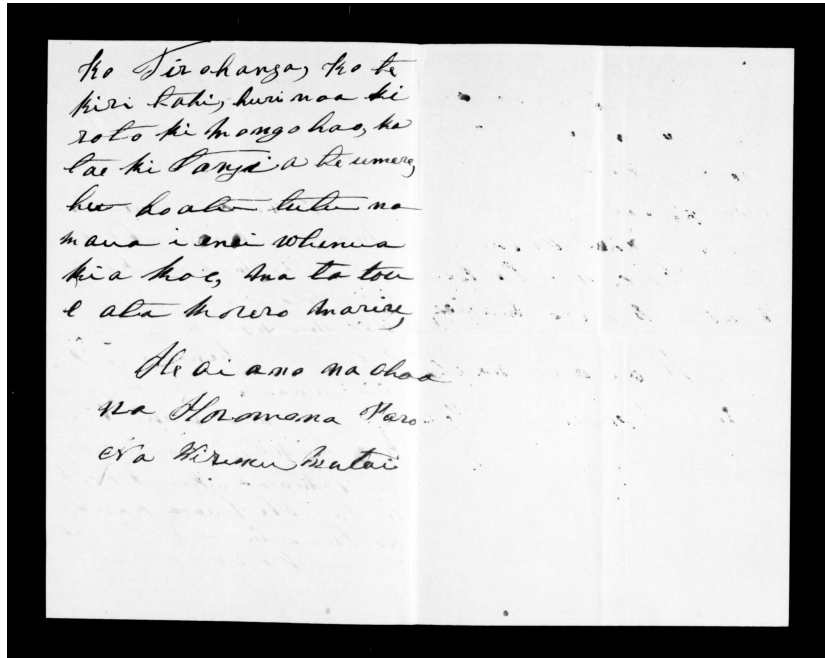 ko Tirohanga, ko te
kiri taki, huri noa ki
roto ki mongohao, ka
tae ki Tangi a te umere,
hoatu tutu na
maua i enei whenua
kia koe, ma ta tou
e ata korero marire,
He oi ano na o hoa
na Horomona Paro
Na Wiremu